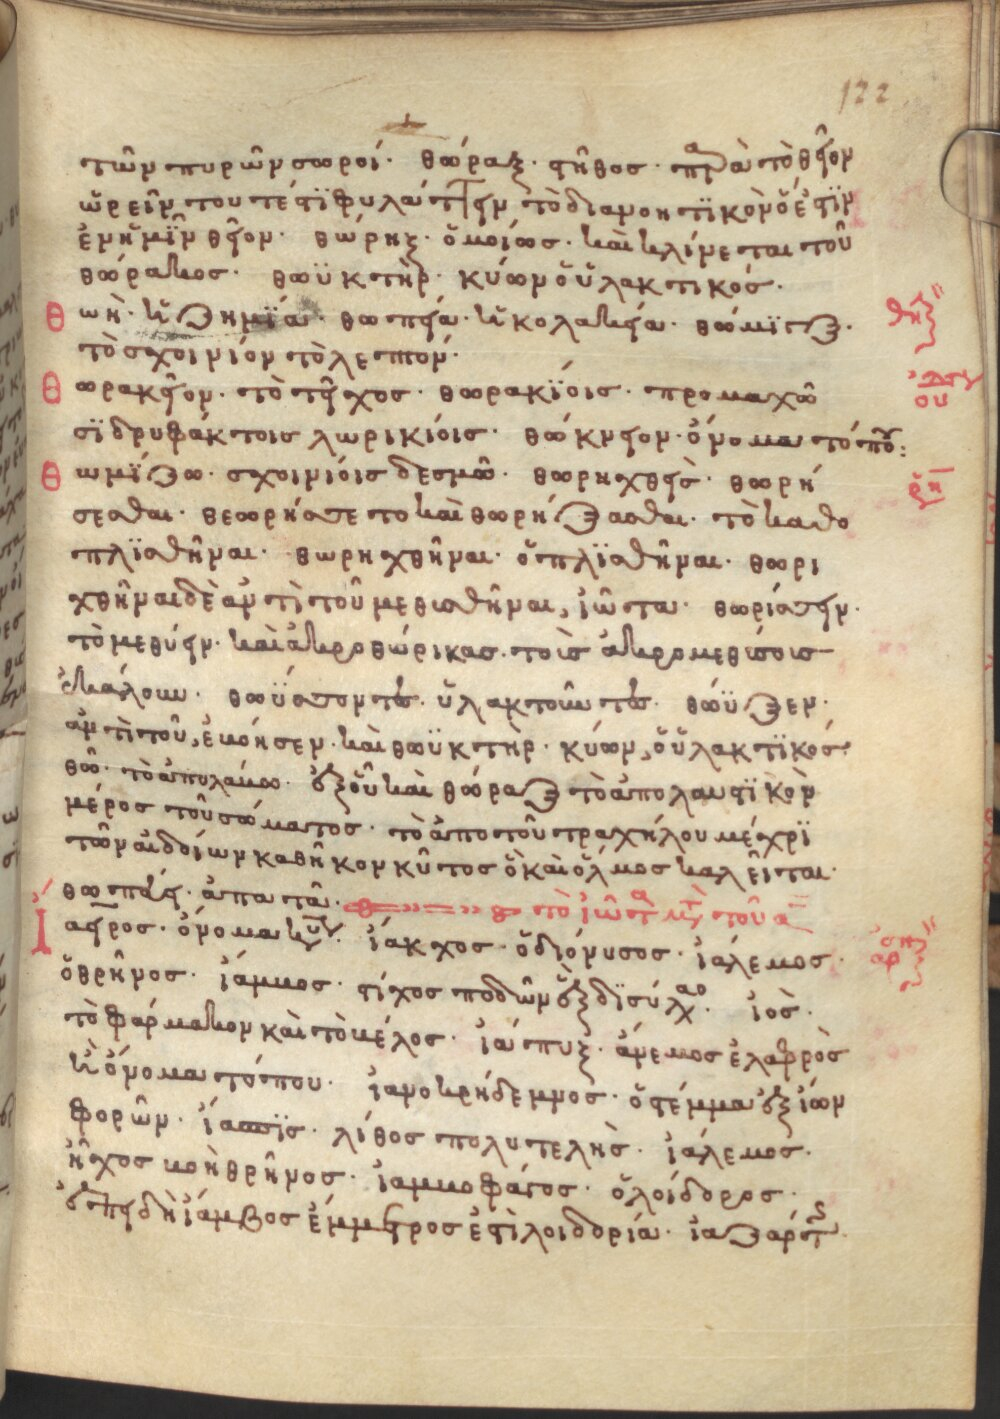 122
τῶν πυρῶν σωροί· θώραξ· στῆθος· παρὰ τὸ θεῖον
ὠρεῖν τουτέστι φυλάττειν τὸ διανοητικὸν ὅ ἐστιν
ἐν ἡμῖν θεῖον· θώρηξ· ὁμοίως· καὶ κλίνεται τοῦ
θώρακος· θωϋκτὴρ· κύων ὁ ὑλακτικός·
Θωὴ· ἡ ζημία· θωπεία· ἡ κολακεία· θώμιγξ·
τὸ σχοινίον τὸ λεπτόν·
Θωρακεῖον· τὸ τεῖχος· θωρακίοις· προμαχῶ
σι δρυφάκτοις λωρικίοις· θώκνειον· ὄνομα τόπου:
Θωμίζω· σχοινίοις δεσμῶ· θωρηχθεὶς· θωρή
σεσθαι· θεωρήσετο καὶ θωρήξασθαι· τὸ καθο
πλισθῆναι· θωρηχθῆναι· ὁπλισθῆναι· θωρι
χθῆναι δὲ ἀντὶ τοῦ μεθυσθῆναι, ἰῶτα· θωρίσσειν·
τὸ μεθύειν· καὶ ἀκροθώρικας· τοὺς ἀκρομεθύσους
ἐκάλουν· θωΰσσοντος· ὑλακτοῦντος· θώϋξεν·
ἀντὶ τοῦ, ἐνόησεν· καὶ θωϋκτὴρ· κύων, ὁ ὑλακτικός·
θῶ· τὸ ἀπολαύω· ἐξ οὗ καὶ θώραξ τὸ ἀπολαυστικὸν
μέρος τοῦ σώματος· τὸ ἀπὸ τοῦ τραχήλου μέχρι
τῶν αἰδοίων καθῆκον κῦτος ὃ καὶ ὅλμος καλεῖται·
θωπεῖς· ἀπατᾷ· τὸ ἰῶτα μετὰ τοῦ α
Ἰάειρος· ὄνομα κύριον· ἴακχος· ὁ διόνυσος· ἰάλεμος·
ὁ θρῆνος· ἴαμμος· στίχος ποδῶν ἓξ δισύλλαβος· ἰὸς·
τὸ φάρμακον καὶ τὸ βέλος· ἰάπυξ· ἄνεμος ἐλαφρὸς
ἢ ὄνομα τόπου· ἰανοκρήδεμνος· ὁ στέμμα ἐξ ἴων
φορῶν· ἴασπϊς· λίθος πολυτελὴς· ἰάλεμος·
ἦχος κοὴ θρῆνος· ἰαμμοφάγος· ὁ λοίδορος·
ἐπειδὴ ἴαμβος ἔμμετρος ἐστὶ λοιδορία·